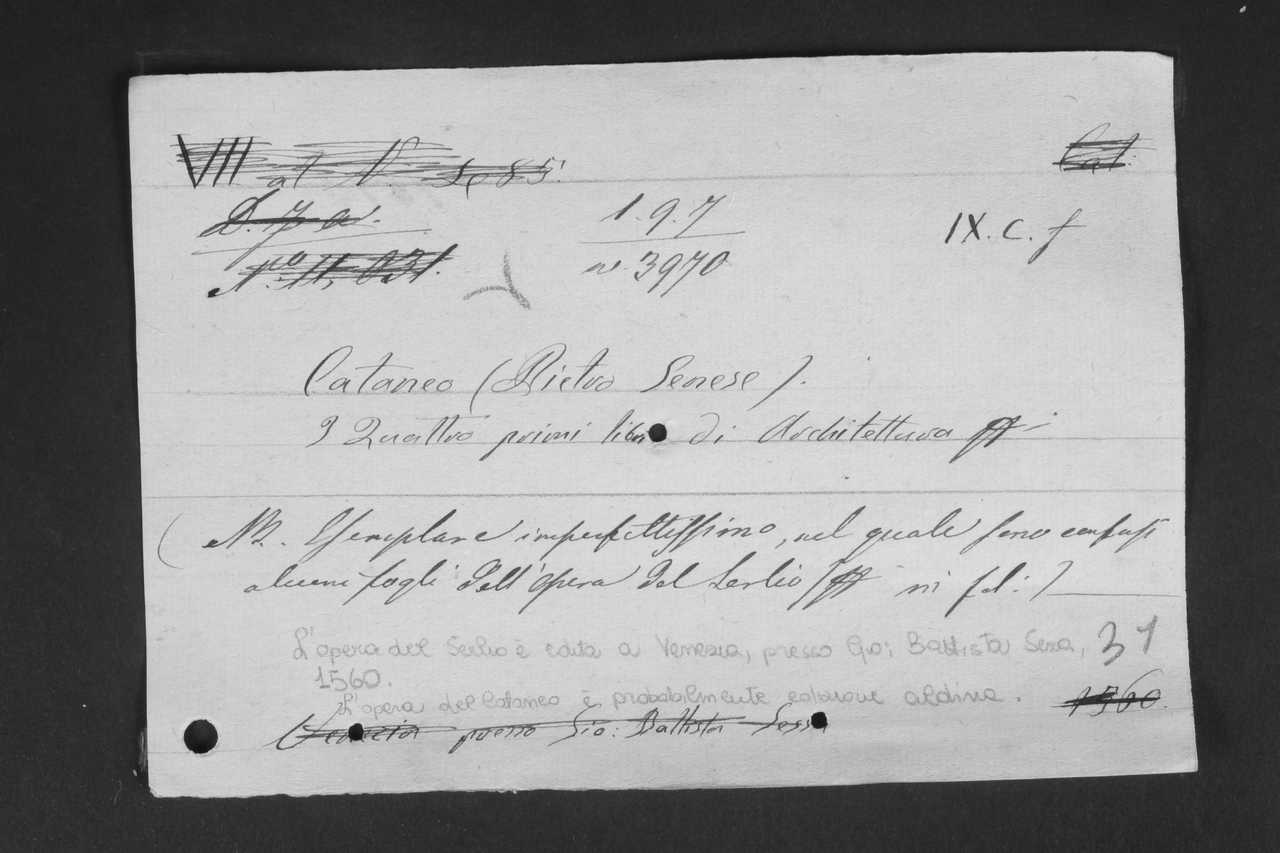 VII at N. 5085.
Cat.
D. 7 a.
1. 9. 7
IX. C. f
N.º 11,031.
n. 3970
Cataneo (Pietro Senese).
I Quattro primi libri di Architettura
(NB. Esemplare imperfettissimo, nel quale sono confusi
alcuni fogli dell'opera del Serlio in fol:)
L'opera del Serlio è edita a Venezia, presso Gio: Battista Sessa,
31
1560.
L'opera del Cataneo è probabilmente edizione aldina.
1560.
Venezia presso Gio: Battista Sessa